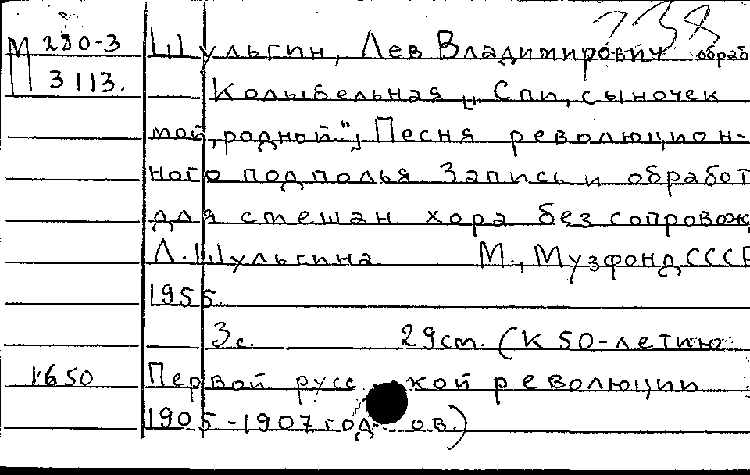 738
М 280-3 Шульгин, Лев Владимирович обраб
3113. Колыбельная „Спи, сыночек
мой, родной", Песня революцион-
ного подполья Запись и обработ
для смешан хора без сопровож
Л. Шульгина М., Музфонд СССР
1955.
3с. 29см. (К 50-летию
1650 Первой русс кой революции
1905-1907 год ов.)